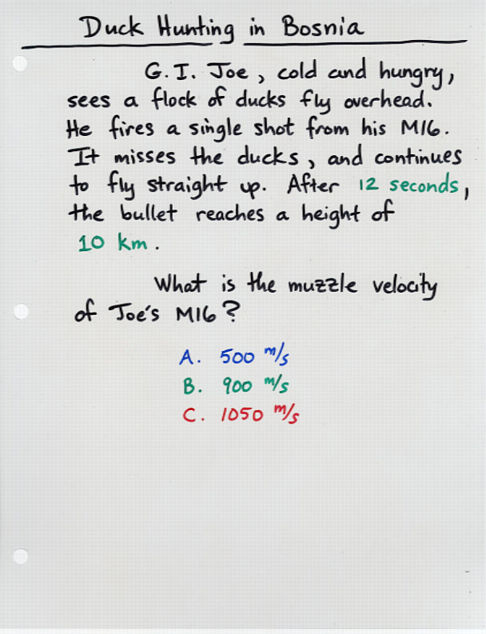 Duck Hunting in Bosnia
G. I. Joe, cold and hungry,
sees a flock of ducks fly overhead.
He fires a single shot from his M16.
It misses the ducks, and continues
to fly straight up. After 12 seconds,
the bullet reaches a height of
10 km.
What is the muzzle velocity
of Joe's M16?
A. 500 m/s
B. 900 m/s
C. 1050 m/s